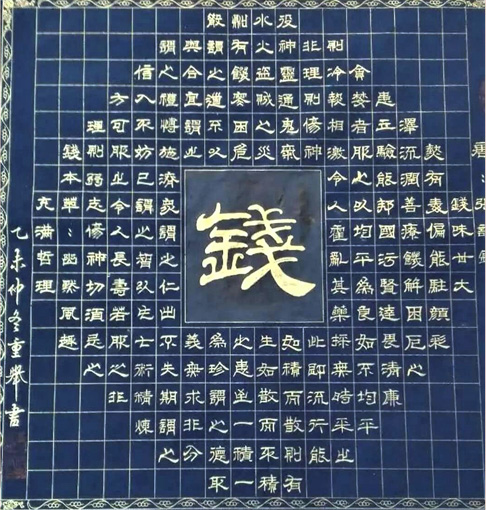 錢
唐:張說錢
錢味甘大
熱有毒偏能駐顏彩
澤流潤善療饑解困厄之
患立驗能邦國污賢達畏清廉
貪婪者服之以均平為良如不均平
則冷報相激令人霍亂其藥採無時采之
非理則傷神此即流行能
役神靈通鬼氣如積而散則有
水火盜賊之災生如散而不積
則有饑寒困危之患至一積一
散謂之道不以為珍謂之德取
與合宜謂之義無求非分
謂之禮博施濟眾謂之仁出不失期謂之
信入不妨己謂之智以七術精煉
方可服之令人長壽若服之非
理則弱志傷神切須忌之
錢本草:幽默風趣
充滿哲理
乙未仲冬重舉書